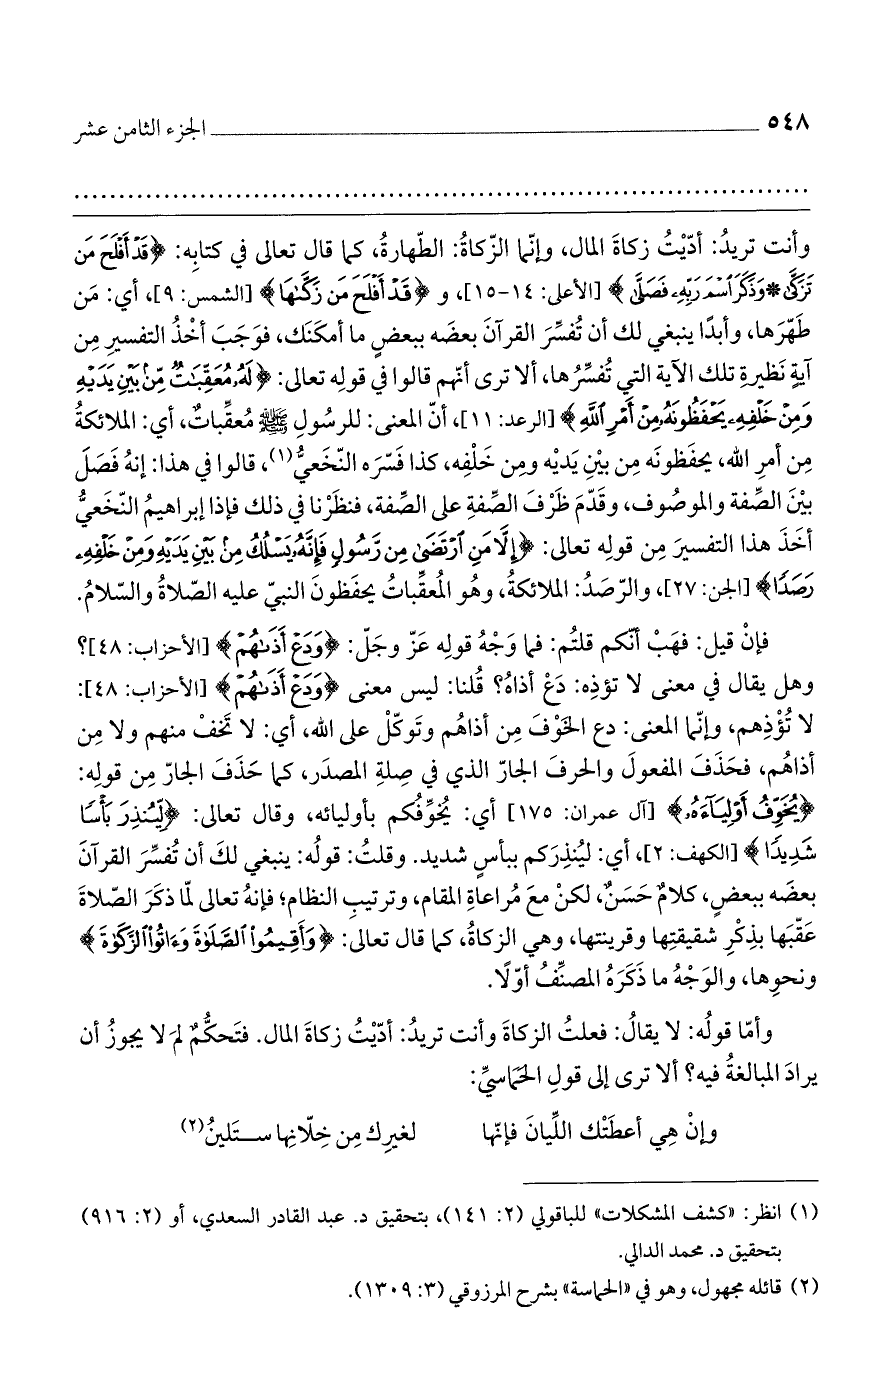 ٥٤٨ الجزء الثامن عشر
وأنت تريدُ: أدّيْتُ زكاةَ المال، وإنّما الزّكاةُ: الطّهارةُ، كما قال تعالى في كتابِه: ﴿قَدْ أَفْلَحَ مَن
تَزَكَّىٰ * وَذَكَرَ ٱسْمَ رَبِّهِۦ فَصَلَّىٰ﴾ [الأعلى: ١٤-١٥]، و ﴿قَدْ أَفْلَحَ مَن زَكَّىٰهَا﴾ [الشمس: ٩]، أي: مَن
طَهّرَها، وأبدًا ينبغي لك أن تُفسِّرَ القرآنَ بعضَه ببعضٍ ما أمكَنَك، فوَجَبَ أخْذُ التفسيرِ مِن
آيةٍ نَظيرةِ تلك الآية التي تُفسِّرُها، ألا ترى أنّهم قالوا في قولِه تعالى: ﴿لَهُۥ مُعَقِّبَٰتٌ مِّنۢ بَيْنِ يَدَيْهِ
وَمِنْ خَلْفِهِۦ يَحْفَظُونَهُۥ مِنْ أَمْرِ ٱللَّهِ﴾ [الرعد: ١١]، أنّ المعنى: للرسُولِ ﷺ مُعقِّباتٌ، أي: الملائكةُ
مِن أمرِ الله، يحفَظونَه مِن بيْنِ يَديْه ومِن خَلْفِه، كذا فسّرَه النّخَعيُّ(١)، قالوا في هذا: إنهُ فَصَلَ
بيْنَ الصِّفة والموصُوف، وقدّمَ ظَرْفَ الصِّفةِ على الصِّفة، فنظَرْنا في ذلك فإذا إبراهيمُ النّخَعيُّ
أخَذَ هذا التفسيرَ مِن قولِه تعالى: ﴿إِلَّا مَنِ ٱرْتَضَىٰ مِن رَّسُولٍ فَإِنَّهُۥ يَسْلُكُ مِنۢ بَيْنِ يَدَيْهِ وَمِنْ خَلْفِهِۦ
رَصَدًا﴾ [الجن: ٢٧]، والرّصَدُ: الملائكةُ، وهُو المُعقِّباتُ يحفَظونَ النبيّ عليه الصّلاةُ والسّلامُ.
فإنْ قيل: فهَبْ أنّكم قلتُم: فما وَجْهُ قولِه عَزّ وجَلّ: ﴿وَدَعْ أَذَىٰهُمْ﴾ [الأحزاب: ٤٨]؟
وهل يقال في معنى لا تؤذِه: دَعْ أذاهُ؟ قُلنا: ليس معنى ﴿وَدَعْ أَذَىٰهُمْ﴾ [الأحزاب: ٤٨]:
لا تُؤْذِهم، وإنّما المعنى: دع الخَوْفَ مِن أذاهُم وتَوكّلْ على الله، أي: لا تَخَفْ منهم ولا مِن
أذاهُم، فحَذَفَ المفعولَ والحرفَ الجارّ الذي في صِلةِ المصدَر، كما حَذَفَ الجارّ مِن قولِه:
﴿يُخَوِّفُ أَوْلِيَآءَهُۥ﴾ [آل عمران: ١٧٥] أي: يُخوِّفُكم بأوليائه، وقال تعالى: ﴿لِّيُنذِرَ بَأْسًا
شَدِيدًا﴾ [الكهف: ٢]، أي: ليُنذِرَكم ببأسٍ شديد. وقلتُ: قولُه: ينبغي لكَ أن تُفسِّرَ القرآنَ
بعضَه ببعضٍ، كلامٌ حَسَنٌ، لكنْ معَ مُراعاةِ المقام، وترتيبِ النظام؛ فإنهُ تعالى لمّا ذكَرَ الصّلاةَ
عَقّبَها بذِكْرِ شقيقتِها وقرينتِها، وهي الزكاةُ، كما قال تعالى: ﴿وَأَقِيمُوا۟ ٱلصَّلَوٰةَ وَءَاتُوا۟ ٱلزَّكَوٰةَ﴾
ونحوِها، والوَجْهُ ما ذَكَرَهُ المصنِّفُ أوّلًا.
وأمّا قولُه: لا يقالُ: فعلتُ الزكاةَ وأنت تريدُ: أدّيْتُ زكاةَ المال. فتَحكُّمٌ لمَ لا يجوزُ أن
يرادَ المبالغةُ فيه؟ ألا ترى إلى قولِ الحَماسيِّ:
وإنْ هِي أعطَتْك اللِّيانَ فإنّها لغيرِك مِن خِلّانِها ستَلينُ(٢)
(١) انظر: «كشف المشكلات» للباقولي (٢: ١٤١)، بتحقيق د. عبد القادر السعدي، أو (٢: ٩١٦)
بتحقيق د. محمد الدالي.
(٢) قائله مجهول، وهو في «الحماسة» بشرح المرزوقي (٣: ١٣٠٩).